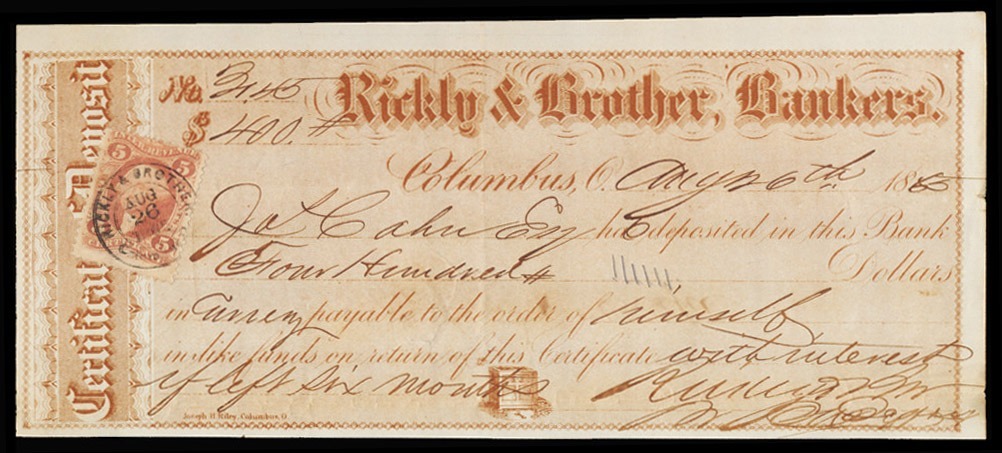 Certificat Deposit
No. 3145
Rickly & Brother, Bankers.
$ 400.#
Columbus, O. Aug 26th 186
5 5
RICKLY & BROTHER
AUG
26
Jos Cahn Esq has deposited in this Bank
Four Hundred # Dollars
in Currency payable to the order of himself
in like funds on return of this Certificate with interest
if left six months
Joseph H. Riley, Columbus, O.